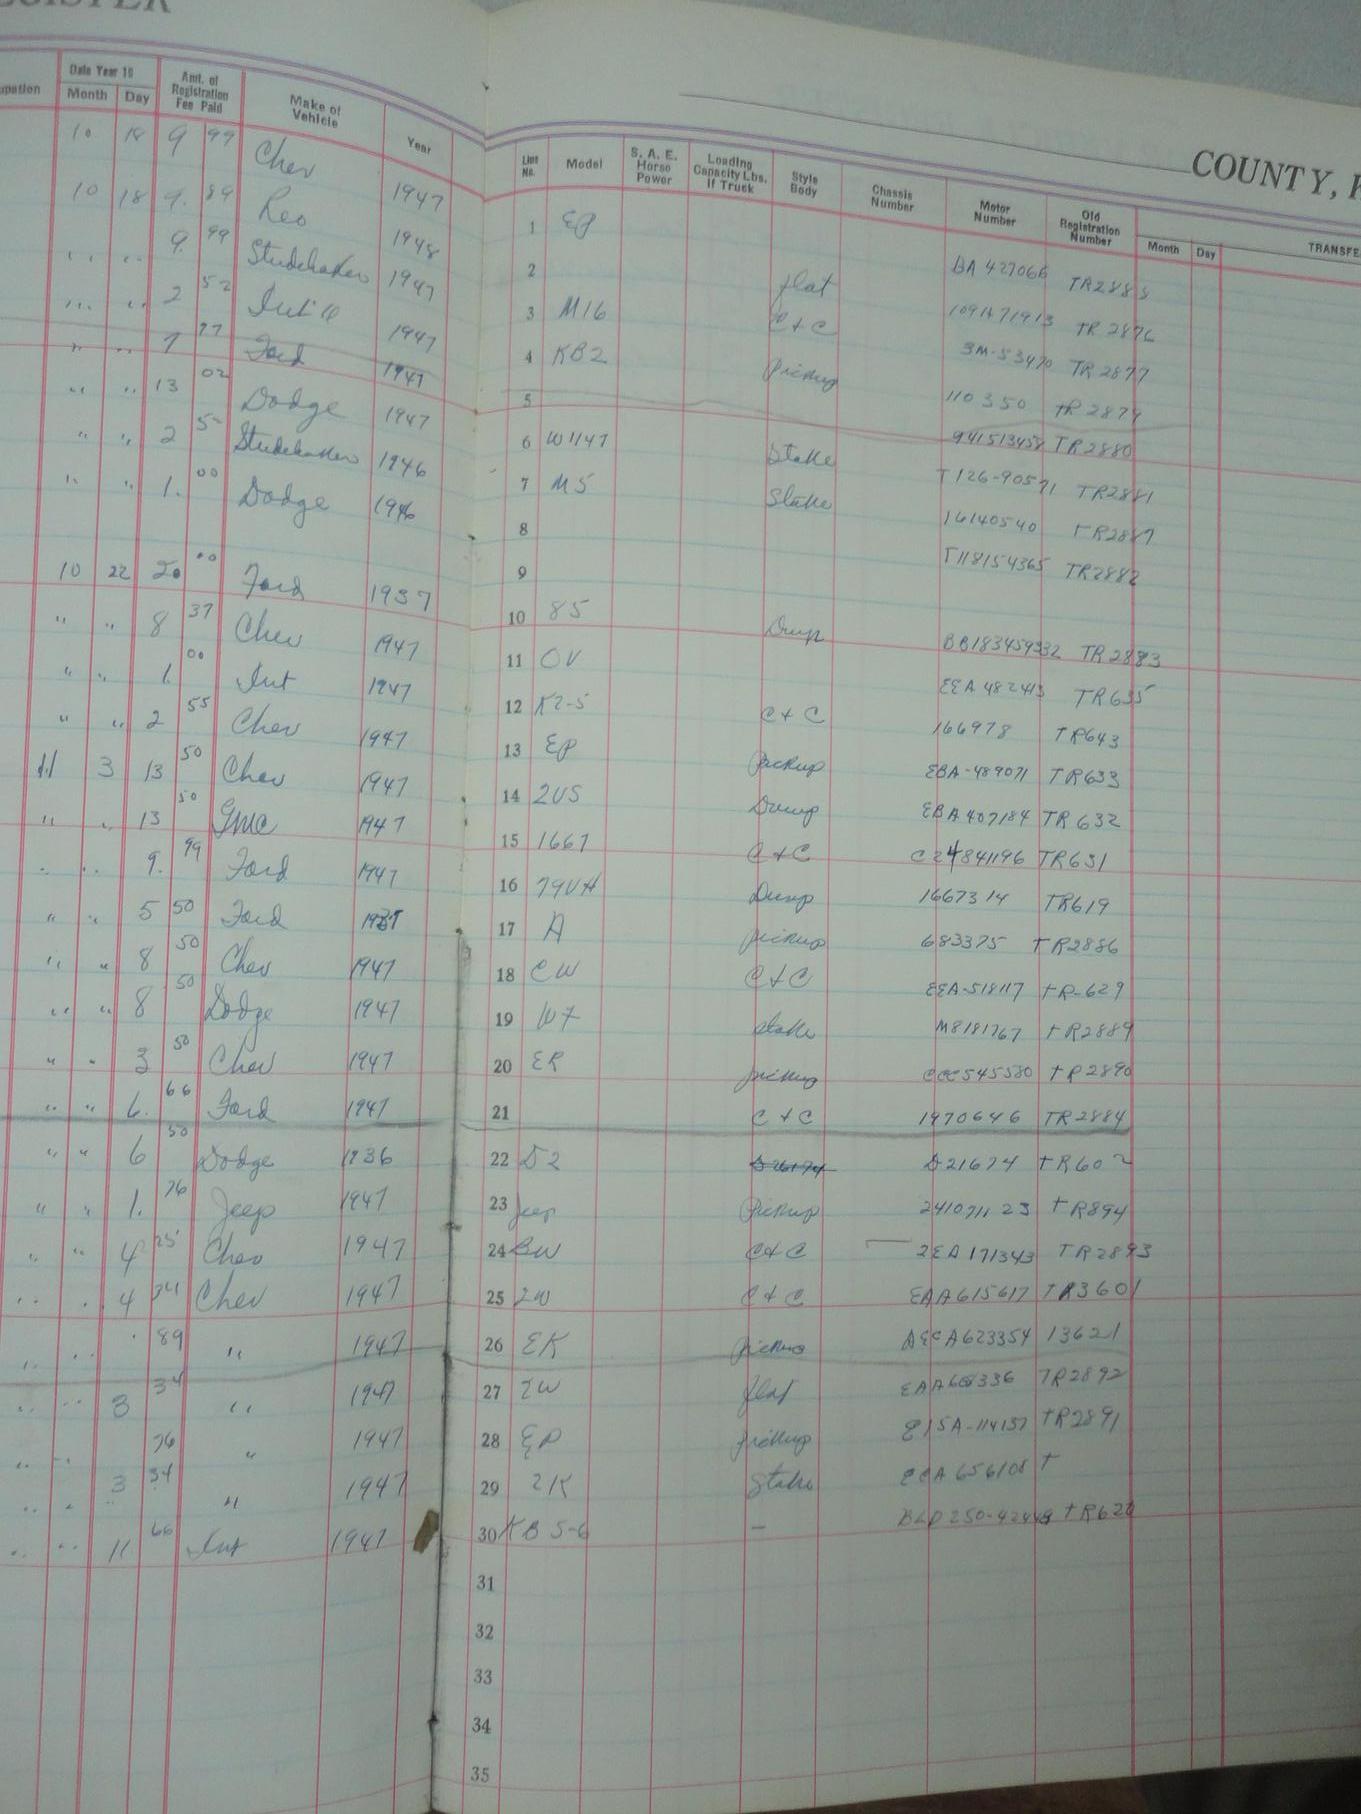 COUNTY, K
upation Date Year 19 Month Day Amt. of Registration Fee Paid Make of Vehicle Year
Line No. Model S. A. E. Horse Power Loading Capacity Lbs. If Truck Style Body Chassis Number Motor Number Old Registration Number Month Day TRANSFE
10 18 9 99 Chev 1947 1 EP BA 427066 TR2885
10 18 9. 89 Reo 1948 2 flat 109A71913 TR 2876
" " 9. 99 Studebaker 1947 3 M16 C + C 3M-53470 TR 2877
" " 2 52 1947 4 KB2 Pickup 110350 TR 2879
" " 7 77 Ford 1947 5 941513458 TR2880
" " 13 02 Dodge 1947 6 W1147 Stake T126-90571 TR2881
" " 2 5- Studebaker 1946 7 M5 Stake 16140540 TR2887
" " 1. 00 Dodge 1946 8 T118154365 TR2882
9
10 22 20 00 Ford 1937 10 85 Dump BB183459332 TR2883
" " 8 37 Chev 1947 11 OV EEA 482413 TR635
" " 1. 00 Int 1947 12 K2-5 C + C 166978 TR643
" " 2 55 Chev 1947 13 EP Pickup EBA-489071 TR633
11 3 13 50 Chev 1947 14 2US Dump EBA407184 TR632
" " 13 50 GMC 1947 15 1667 C + C C24841196 TR631
" " 9. 99 Ford 1947 16 79UH Dump 1667314 TR619
" " 5 50 Ford 17 A pickup 683375 TR2886
" " 8 50 Chev 1947 18 CW C + C EEA-518117 TR-629
" " 8 50 Dodge 1947 19 W7 stake M8181767 TR2889
" " 3 50 Chev 1947 20 ER pickup CCC545580 TR2890
" " 6. 66 Ford 1947 21 C + C 1970646 TR2884
" " 6 50 Dodge 1936 22 D2 D21674 TR602
" " 1. 76 Jeep 1947 23 Jeep Pickup 241071123 TR894
" " 4 25 Chev 1947 24 BW C + C 2EA171343 TR2893
" " 4 34 Chev 1947 25 2W C + C EAA615617 TR3601
" " 89 " 1947 26 EK pickup DECA623354 13621
" " 3 34 " 1947 27 2W flat TR2892
" " 76 " 1947 28 EP pickup E15A-114157 TR2891
" " 3 34 " 1947 29 2K Stake CCA656108 T
" " 11 66 Int 1947 30 KB5-6 — TR620
31
32
33
34
35